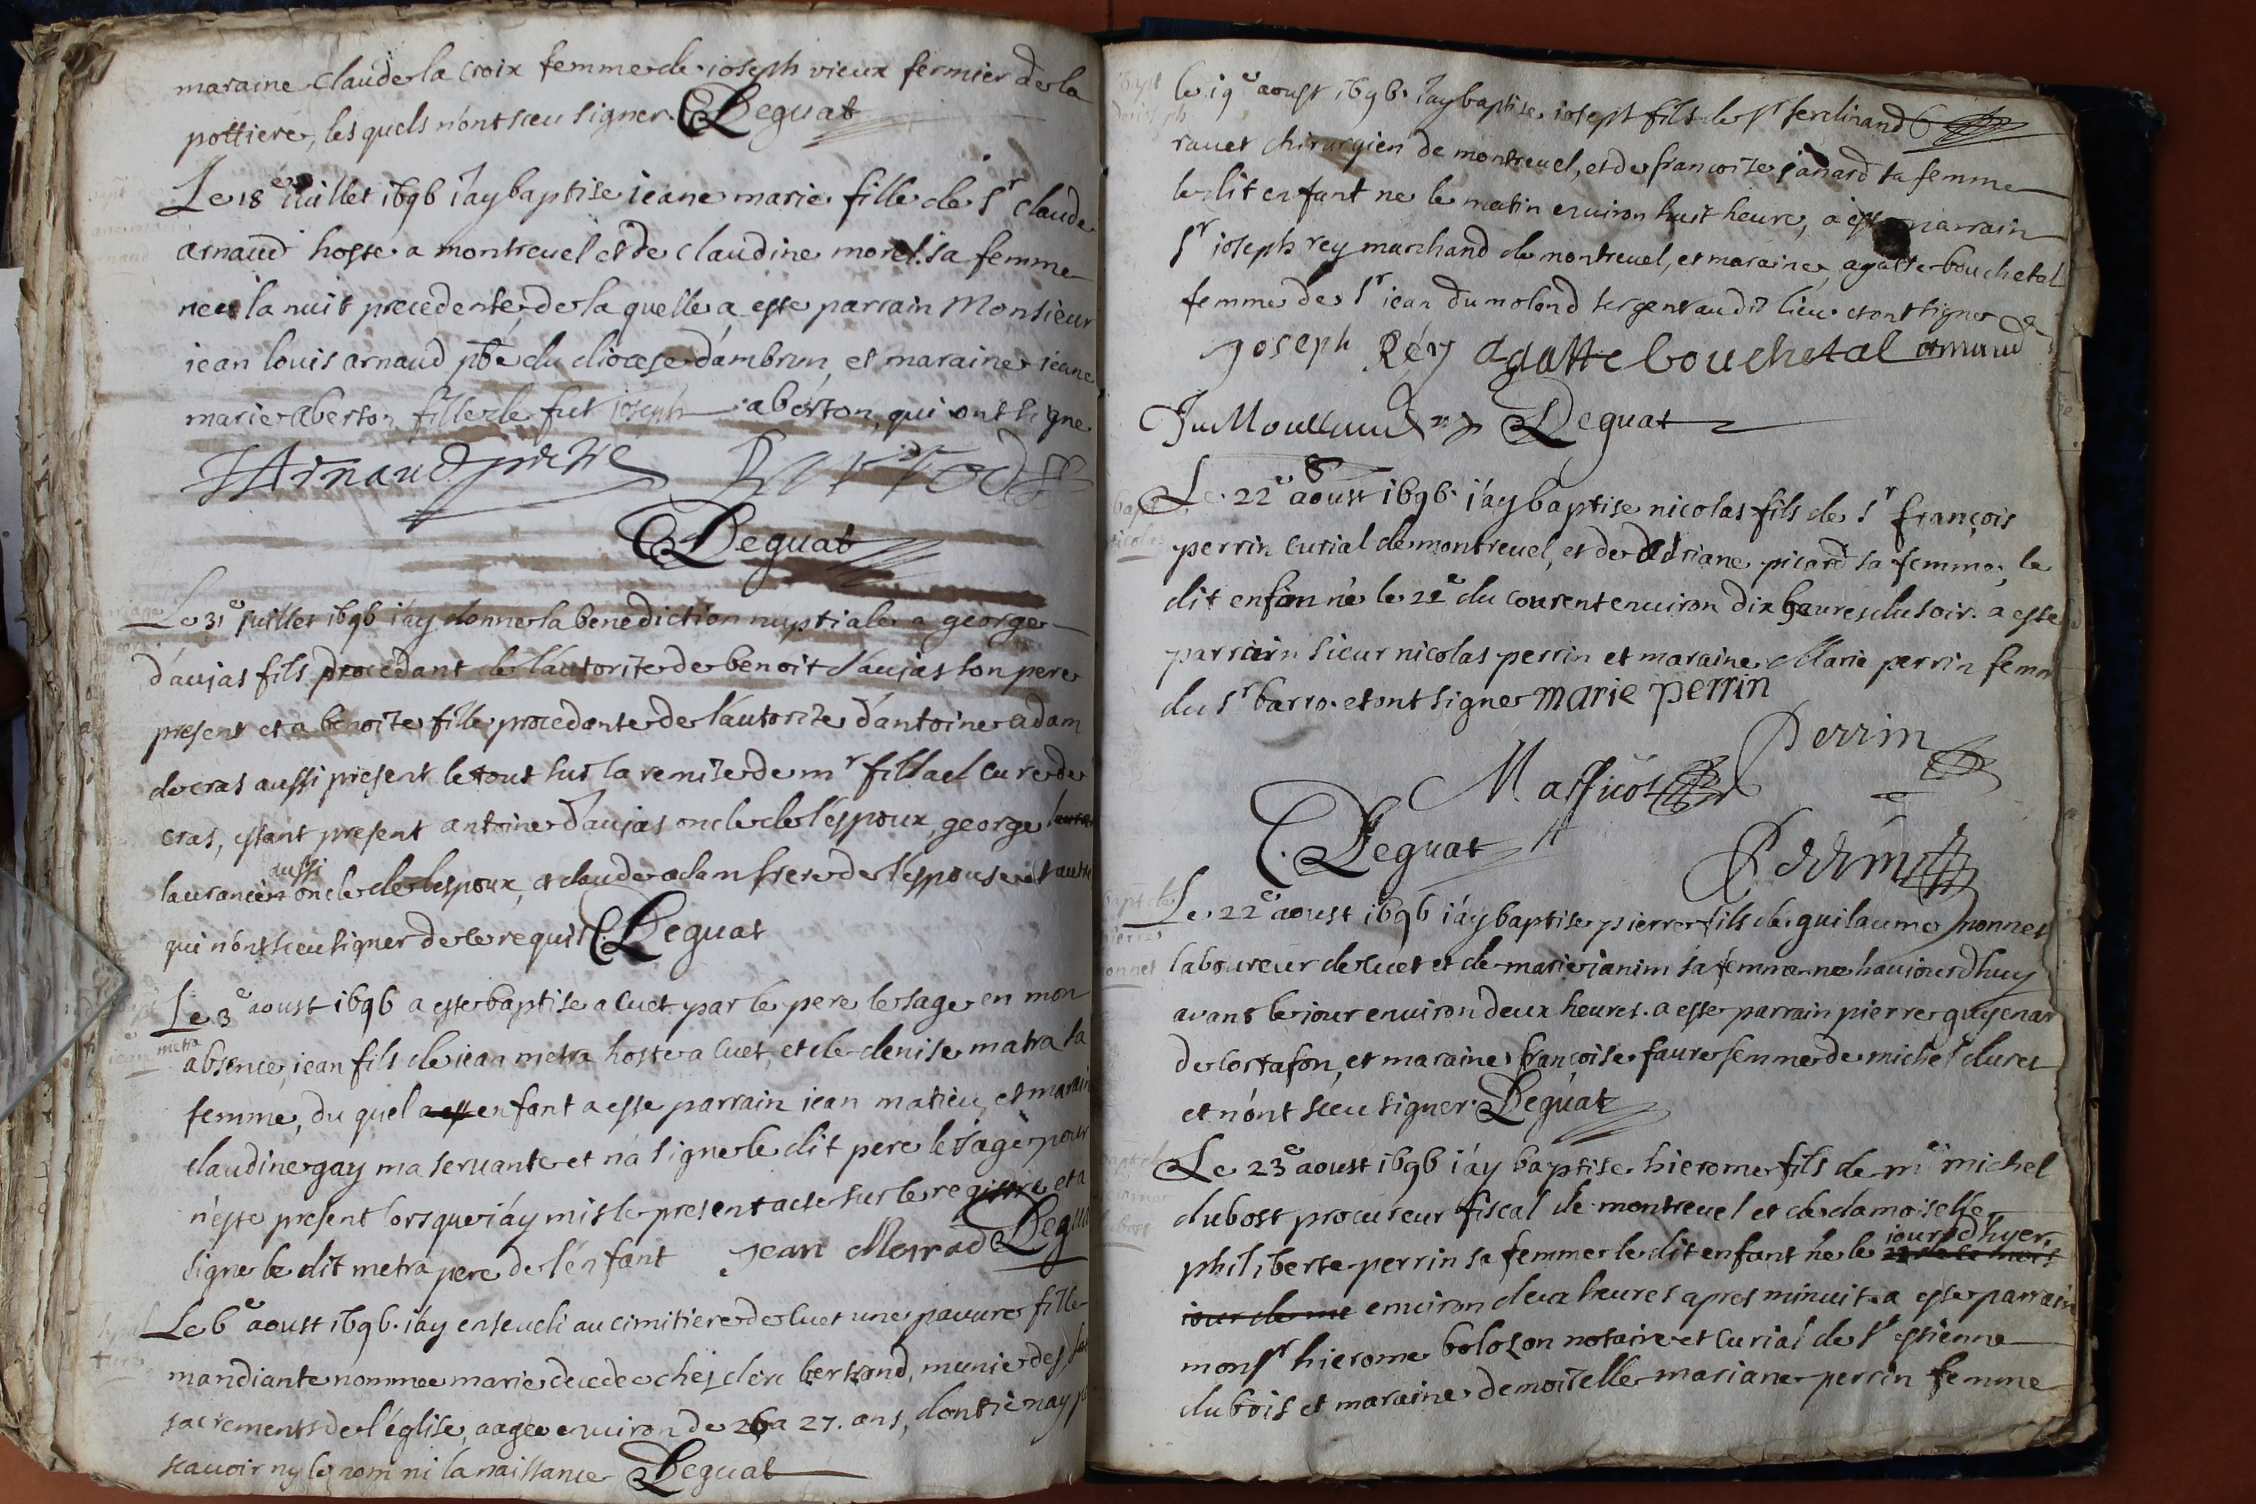 maraine claude la croix femme de ioseph vieux fermier de la
pottiere, les quels n'ont sceu signer. Deguat
Le 18e iuillet 1696 i'ay baptise ieane marie fille de Sr claude
arnaud hoste a montrevel et de claudine morel sa femme
nee la nuit precedente, de la quelle a este parrain Monsieur
iean louis arnaud pbre du diocese d'ambrun, et maraine ieane
marie aberton fille de fut ioseph aberton, qui ont signe
JArnaud prtre
Deguat
Le 31e iuillet 1696 i'ay donne la benediction nuptiale a george
d'aujas fils procedant de l'autorite de benoit d'aujas son pere
present et a benoite fille procedante de l'autorite d'antoine adam
de cras aussi present le tout sus la remise de mr filliael cure de
cras, estant present antoine d'aujas oncle de l'espoux, george
laurancin aussi oncle de lespoux, et claude adam frere de l'espouse et autre
qui n'ont sceu signer de ce requis. Deguat
Le 3e aoust 1696 a este baptise a cuet par le pere le sage en mon
absence, iean fils de iean metra hoste a cuet, et de denise matra sa
metra
femme, du quel a est enfant a este parrain iean matieu, et marain
claudine gay ma servante et n'a signe le dit pere le sage pour
n'este present lors que i'ay mis le present acte sur le registre et a
signe le dit metra pere de l'enfant jean Deguat
Le 6e aoust 1696. i'ay enseveli au cimitiere de cuet une pauvre fille
mandiante nommee marie decedee chez clere bertrand, munie des
sacrements de l'église, aagee environ de 26 a 27. ans, dont ie n'ay p
scavoir ny le nom ni la naissance Deguat
le 19e aoust 1696. i'ay baptise ioseph fils de Sr ferdinand
ravet chirurgien de montrevel, et de francoise janard sa femme
le dit enfant ne le matin environ huit heure, a este parrain
Sr ioseph rey marchand de montrevel, et maraine agatte bouchetal
femme de Sr iean du molond sergent au dit lieu. et ont signe
joseph Réy agatte bouchetal arnaud
Deguat
Le 22e aoust 1696. i'ay baptise nicolas fils de Sr françois
perrin curial de montrevel, et de adriane picard sa femme, le
dit enfan né le 21e du courent environ dix heures du soir. a este
parrain sieur nicolas perrin et maraine Marie perrin femm
du Sr barro. et ont signe marie perrin
Perrin
Massicot
Deguat
Perrin
Le 22e aoust 1696 i'ay baptise pierre fils de guilaume monnet
laboureur de cuet et de marie janin sa femme ne haujourdhuy
avant le jour environ deux heures. a este parrain pierre guyenar
de cortafon, et maraine françoise faure femme de michel duret
et n'ont sceu signer. Deguat
Le 23e aoust 1696 i'ay baptise hierome fils de me michel
dubost procureur fiscal de montrevel et de damoiselle
philiberte perrin sa femme le dit enfant ne le jourd'hyer
iour de me environ deux heures apres minuit. a este parrain
monsr hierome bolozon notaire et curial de St estienne
du bois et maraine demoiselle mariane perrin femme